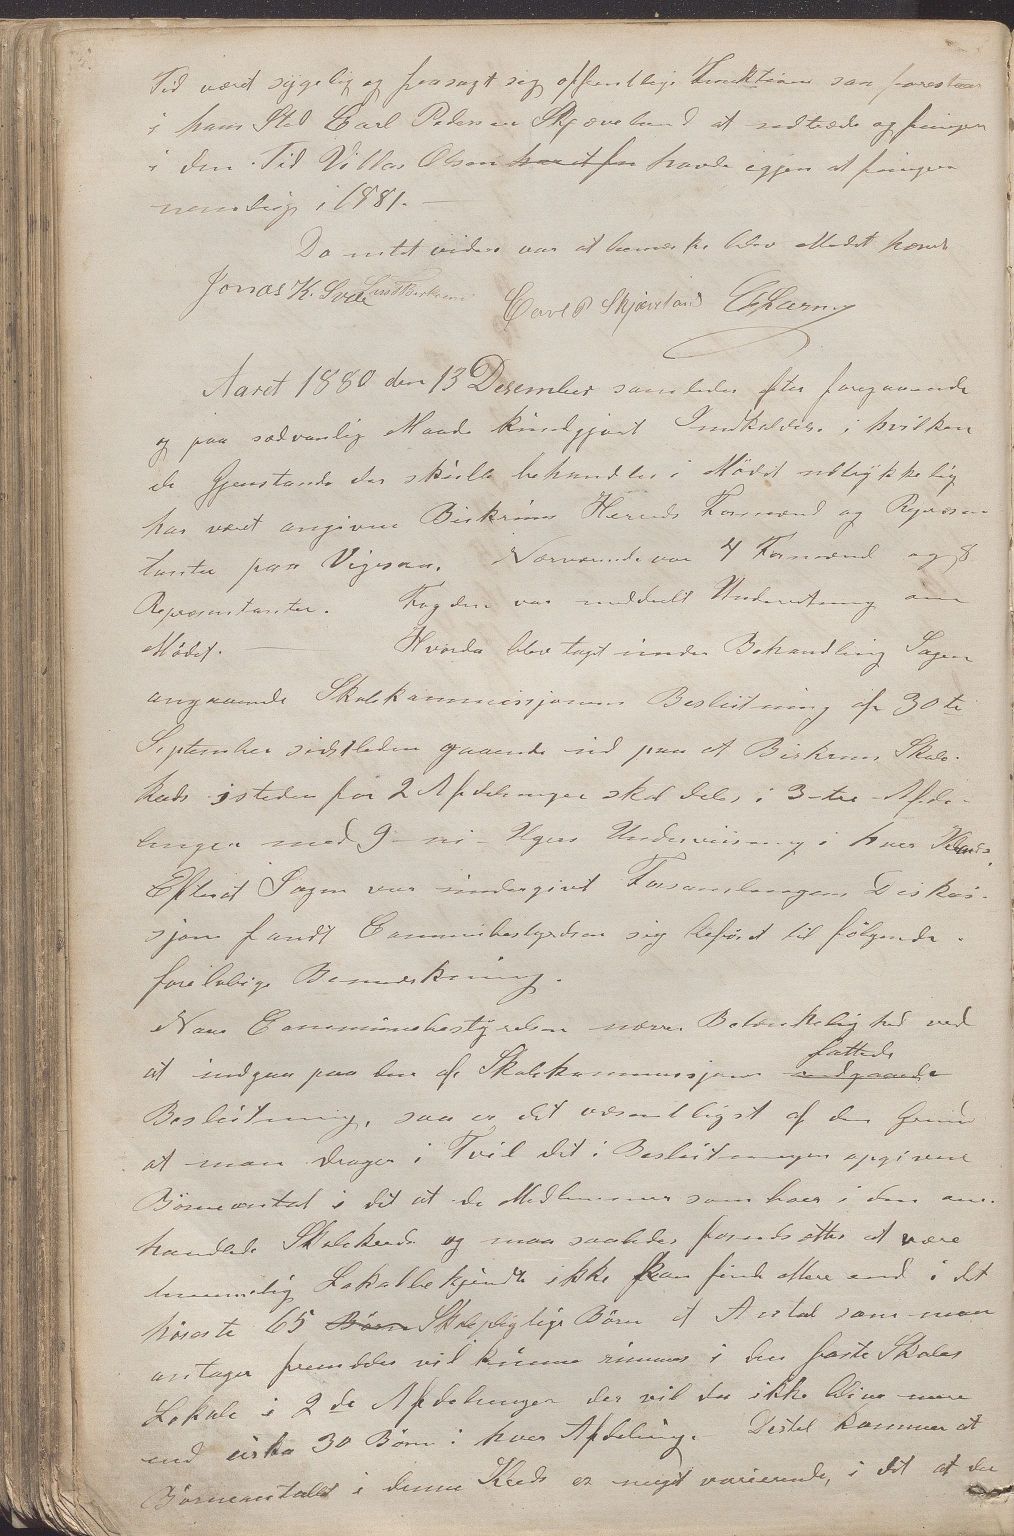 Tid været sygelig og frasagt sig offentlige Funktioner saa foreslaaes
i hans Sted Carl Pedersen Skjæveland at indtræde og fungere
i den Tid Villas Olsen har at fu havde igjen at fungere
nemlig i 1881. —
Da intet videre var at bemærke blev Mødet hævet
Jonas K. Svela Carl P Skjæveland
Aaret 1880 den 13 Desember samledes efter foregaaende
og paa sædvanlig Maade kundgjort Indkaldelse i hvilken
de Gjenstande der skulle behandles i Mødet udtrykkelig
har været angivne Birkrims Herreds Formænd og Repræsen
tanter paa Vigesaa. Nærværende var 4 Formænd og 8
Repræsentanter. Fogden var meddelt Underretning om
Mødet. — Hvorda blev taget under Behandling Sagen
angaaende Skolekommissjonens Beslutning af 30te
September sidstleden gaaende ud paa at Birkrims Skole-
kreds isteden for 2 Afdelinger skal deles i 3-tre Afde-
linger med 9-ni- Ugers Underviisning i hver Kreds.
Efterat Sagen var undergivet Forsamlingens Diskus-
sjon fandt Communebestyrelsen sig beføiet til følgende
foreløbige Bemærkning.
Naar Communebestyrelsen nærer Betænkelighed ved
at indgaa paa den af Skolekommissjonen indgaaede fattede
Beslutning, saa er det væsentligst af den Grund
at man drager i Tvil det i Beslutningen opgivne
Børneantal i det at de Medlemmer som boer i den om-
handlede Skolekreds og maa saaledes forudsættes at være
temmelig Lokalbekjendte ikke kan finde Mere end i det
høieste 65 Børn Skolepligtige Børn et Antal som man
antager fremdeles vil kunne rummes i den faste Skoles
Lokale i 2de Afdelinger der vil da ikke blive mere
end cirka 30 Børn i hver Afdeling. Dertil kommer at
Børneantallet i denne Kreds er meget varierende, i det at der